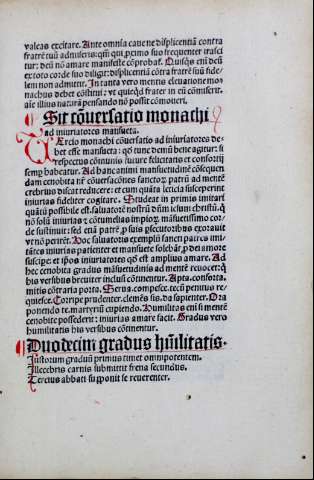 valeas excitare. Ante omnia caue ne displicentiã contra
fratrẽ tuũ admiseris: qm̃ qui primo suo frequenter irasci
tur: deũ nõ amare manifeste cõprobať. Quisq̃s em̃ deũ
ex toto corde suo diligit: displicentiã cõtra fratrẽ suũ fide-
lem non admittit. In tanta vero mentis eleuatione mo
nachus debet cõstitui: vt quicq̃d frater in eũ cõmiserit:
aut illius naturã pensando nõ possit cõmoueri.
Sit cõuersatio monachi
ad iniuriatores mansueta.
Tercio monachi cõuersatio ad iniuriatores de-
bet esse mansueta: q̃ tunc demũ bene agitur: si
respectus cõmunis future felicitatis et consortij
semp̱ habeatur. Ad hanc animi mansuetudinẽ cõsequen
dam cenobita nr̃ẽ cõuersacões sanctoꝝ patrũ ad mentẽ
crebrius discat reducere: et cum quãta leticia susceperint
iniurias fideliter cogitare. Studeat in primis imitari
quãtũ possibile est. saluatorẽ nostrũ dñm iesum christũ. q̃
nõ solũ iniurias: ꝛ cõtumelias impioꝝ. mãsuetissimo cor-
de sustinuit: sed etiã patrẽ p̱ suis p̱secutoribus exorauit
vt nõ perirẽt. Hoc saluatoris exemplũ sancti patres imi-
tãtes iniurias patienter et mansuete solebãt p̱ dei amore
suscipe: et ip̃os iniuriatores q̃d est amplius amare. Ad
hec cenobita gradus mãsuetudinis ad mentẽ reuocet: q̃
his versibus breuiter inclusi cõtinentur. Apta. consorta.
mitis cõtraria porta. Serua. compesce. tecũ penitus re-
quiesce. Corripe prudenter. clemẽs sis. da sapienter. Ora
ponendo te. martyriũ cupiendo. Humilitas em̃ si mentẽ
cenobite possederit: iniurias amare facit. Gradus vero
humilitatis his versibus cõtinentur.
Duodecim gradus hũilitatis.
Iustorum graduũ primus timet omnipotentem.
Illecebris carnis submittit frena secundus.
Tercius abbati supponit se reuerenter.